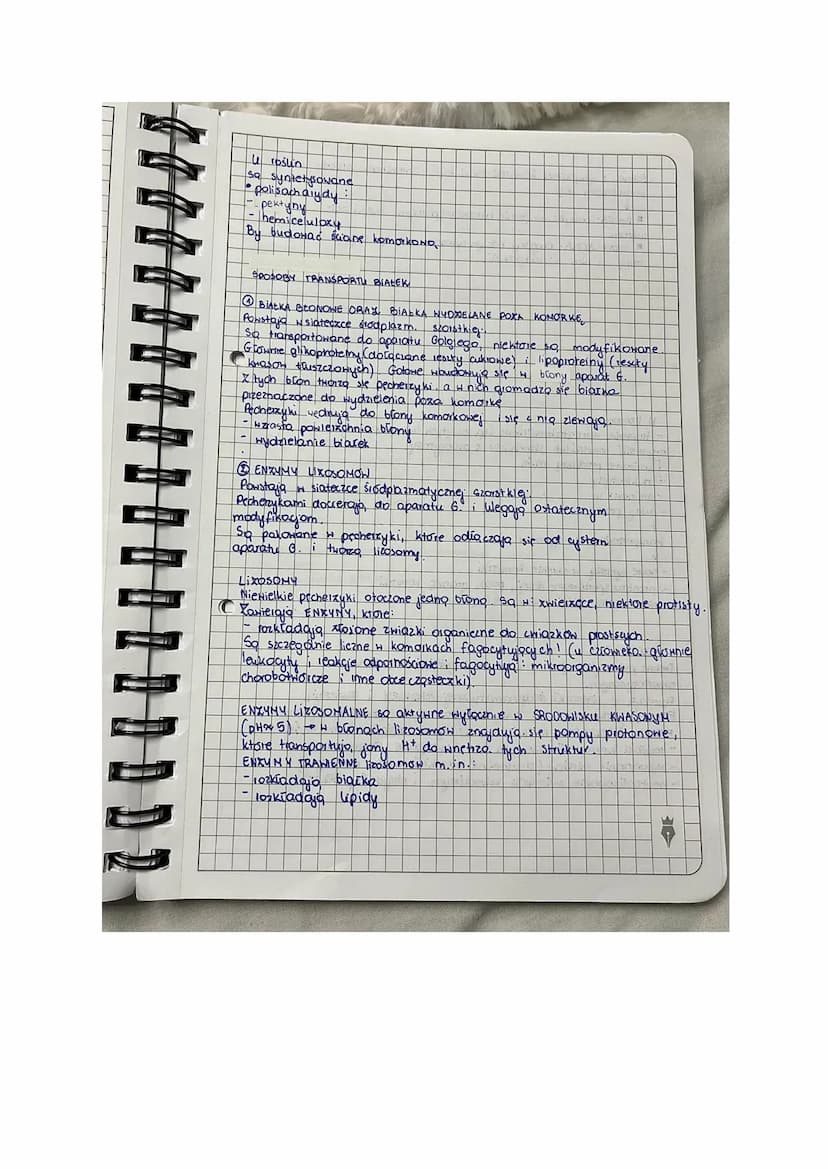 U roślin
są syntetysowane
• polisacharydy :
- pektyny
- hemicelulozy
By budować ścianę komórkową.
SPOSOBY TRANSPORTU BIAŁEK
① BIAŁKA BŁONOWE ORAZ BIAŁKA WYDZIELANE POZA KOMÓRKĘ
Powstają w siateczce śródplazm. szorstkiej.
Są transportowane do aparatu Golgiego, niektóre są modyfikowane.
Głównie glikoproteiny (dołączane reszty cukrowe) i lipoproteiny (reszty
kwasów tłuszczowych). Gotowe wbudowują się w błony aparat G.
Z tych błon tworzą się pęcherzyki a w nich gromadzą się białka
przeznaczone do wydzielenia poza komórkę
Pęcherzyki wędrują do błony komórkowej i się z nią zlewają.
- wzrasta powierzchnia błony
- wydzielanie białek
② ENZYMY LIZOSOMÓW
Powstają w siateczce śródplazmatycznej szorstkiej.
Pęcherzykami docierają do aparatu G. i ulegają ostatecznym
modyfikacjom.
Są pakowane w pęcherzyki, które odłączają się od cystern
aparatu G. i tworzą lizosomy.
LIZOSOMY
Niewielkie pęcherzyki otoczone jedną błoną. Są w: zwierzęce, niektóre protisty.
Zawierają ENZYMY, które:
- rozkładają złożone związki organiczne do związków prostszych.
Są szczególnie liczne w komórkach fagocytujących! (u człowieka: głównie
leukocyty i reakcje odpornościowe i fagocytują : mikroorganizmy
chorobotwórcze i inne obce cząsteczki).
ENZYMY LIZOSOMALNE są aktywne wyłącznie w ŚRODOWISKU KWASOWYM
(pH≈5) → w błonach lizosomów znajdują się pompy protonowe,
które transportują jony H⁺ do wnętrza tych struktur.
ENZYMY TRAWIENNE lizosomów m.in.:
- rozkładają białka
- rozkładają lipidy